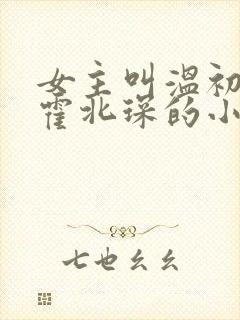 女主叫温初
霍北琛的小
七也幺幺